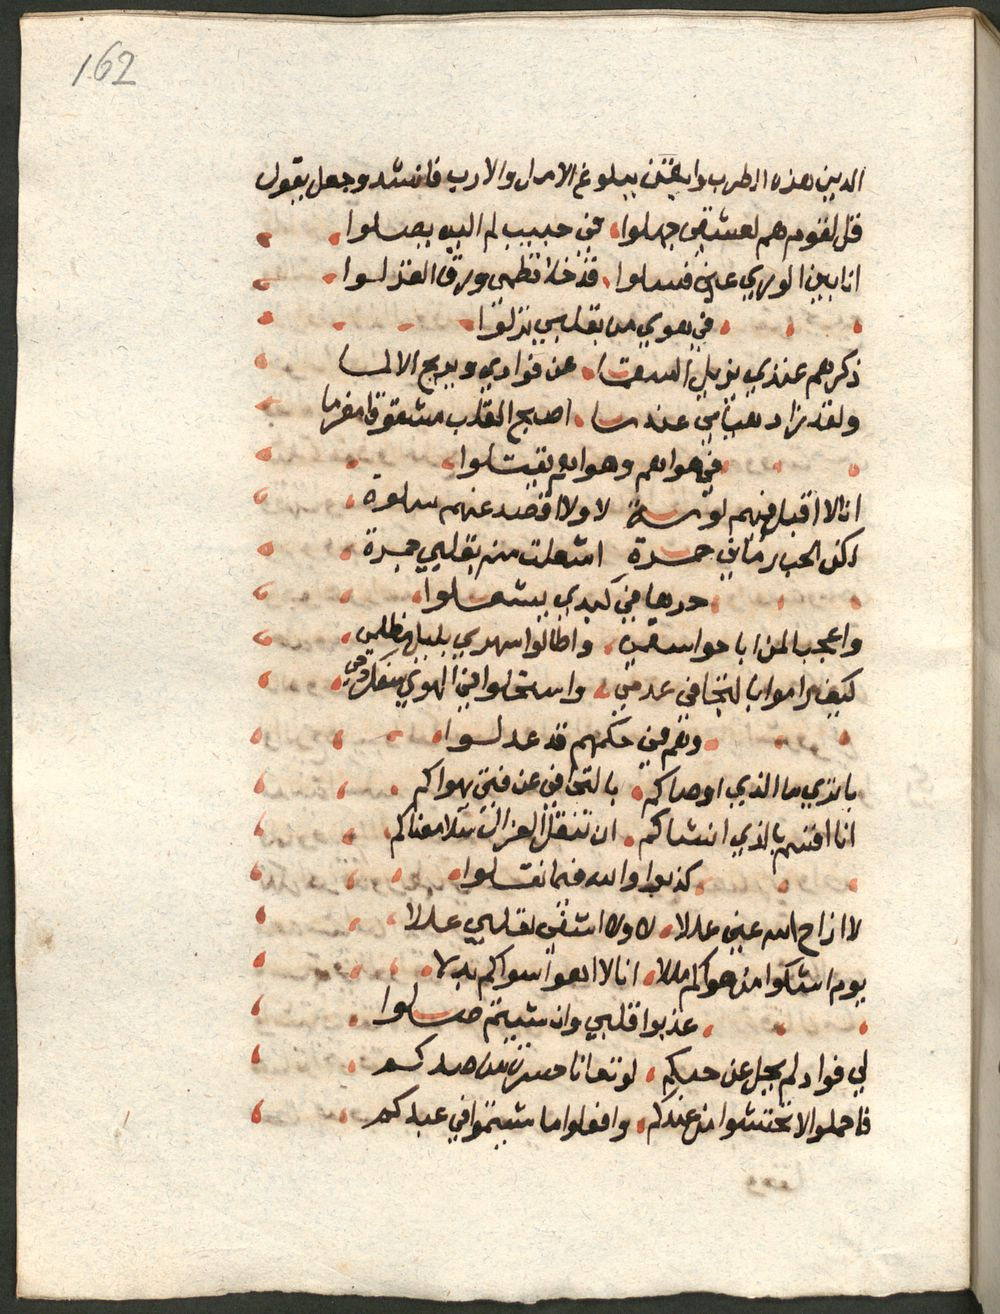 162
الدين بهذه الطرب وايقن ببلوغ الامال والارب فانشد وجعل يقول
قل لقوم هم لعشقي جهلوا، في حبيب لم اليه يصلوا
انا بين الوري عني فسلوا، قد خلا نظمي ورق الغزلوا
في هوي من بقلبي نزلوا
ذكرهم عندي يزيل السقما، عن فوادي ويريح الالما
ولقد زاد هيامي عندما، اصبح القلب مشقوقا مغرما
في هواهم وهواهم يقتلوا
انا لا اقبل فيهم لومة لا ولا اقصد عنهم سلوة
لكن الحب رماني جمرة اشعلت منه بقلبي جمرة
حرها في كبدي يشعلوا
واعجبا لمن اباحوا سقمي، واطالوا سهري بليل مظلمي
كيف راموا بالتجافي عدمي، واستحلوا في الهوي سفك دمي
وهم في حكمهم قد عدلوا
يا تري ما الذي اوصاكم، بالتجافي عن فتي يهواكم
انا اقسم بالذي انشاكم، ان تنقل العزال كلام عناكم
كذبوا والله فيما نقلوا
لا ازاح الله عني عللا، لا ولا اشفي لقلبي عللا
يوم اشكوا من هواكم مللا، انا لا اهوا سواكم بدلا
عذبوا قلبي وان شيتم صلوا
لي فواد لم يحل عن حبكم، لو تعانا حسرتي من صدكم
فاحملوا لا تختشوا من عندكم، وافعلوا ما شيتموا في عبدكم